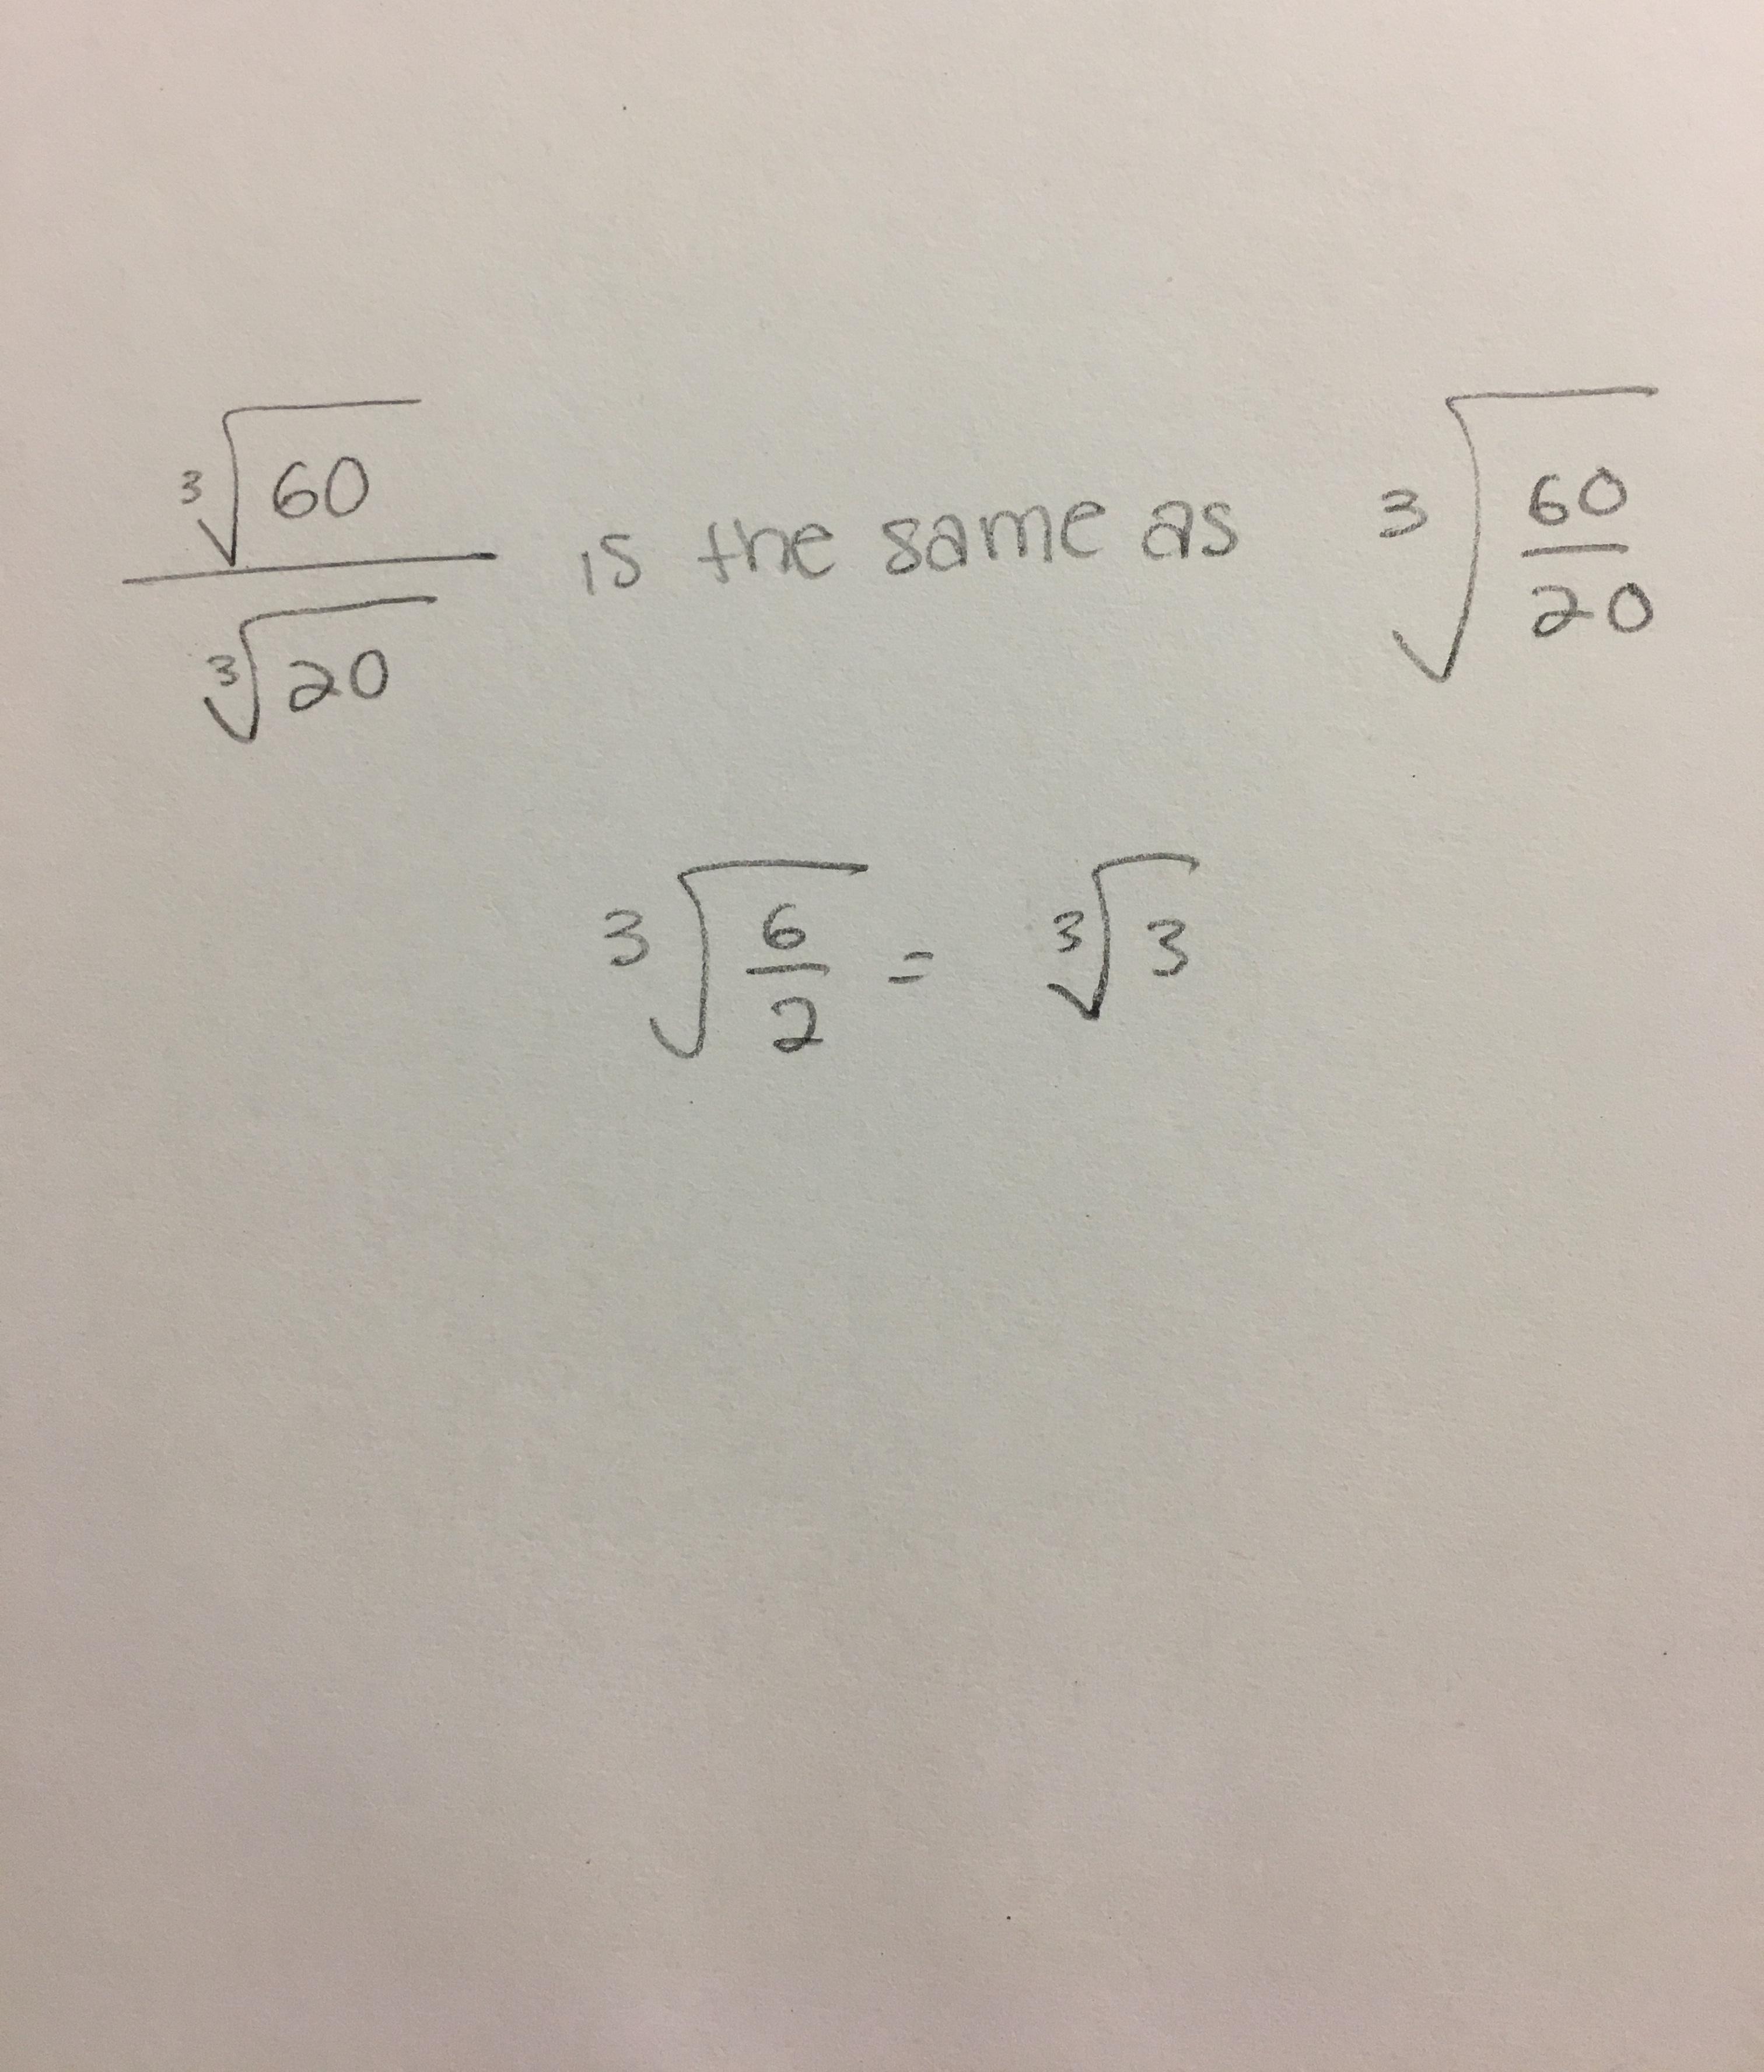 ∛60 / ∛20 is the same as ∛(60/20)
∛(6/2) = ∛3